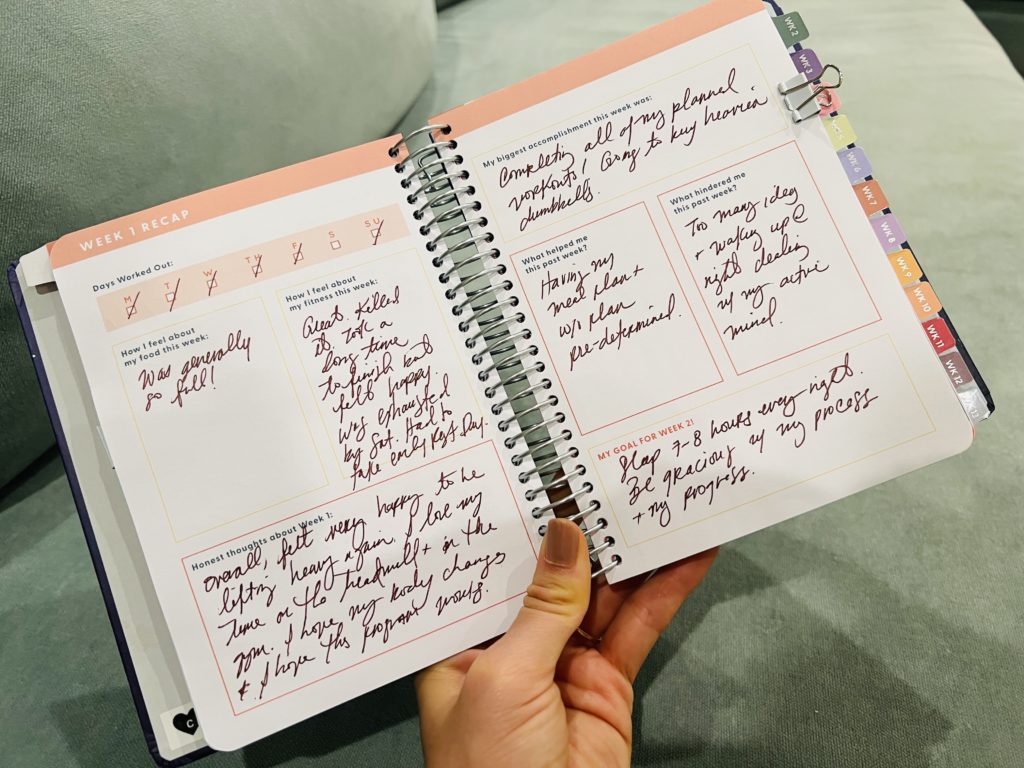 WEEK 1 RECAP
Days Worked Out:
M T W TH F S SU
How I feel about
my food this week:
Was generally
so full!
How I feel about
my fitness this week:
Great. Killed
it. Took a
long time
to finish but
felt happy.
Was exhausted
by Sat. Had to
take early Rest Day.
Honest thoughts about Week 1:
Overall, felt very happy to be
lifting heavy again. I love my
time on the treadmill + in the
gym. I hope my body changes
+ I hope this program works.
C
My biggest accomplishment this week was:
Completing all of my planned
workouts / Going to buy heavier
dumbbells.
What helped me
this past week?
Having my
meal plan +
w/o plan
pre-determined.
What hindered me
this past week?
Too many ideas
+ waking up @
night dealing
w/ my active
mind.
MY GOAL FOR WEEK 2!
Sleep 7-8 hours every night.
Be gracious w/ my process
+ my progress.
WK 2
WK 3
WK 6
WK 7
WK 8
WK 9
WK 10
WK 11
WK 12